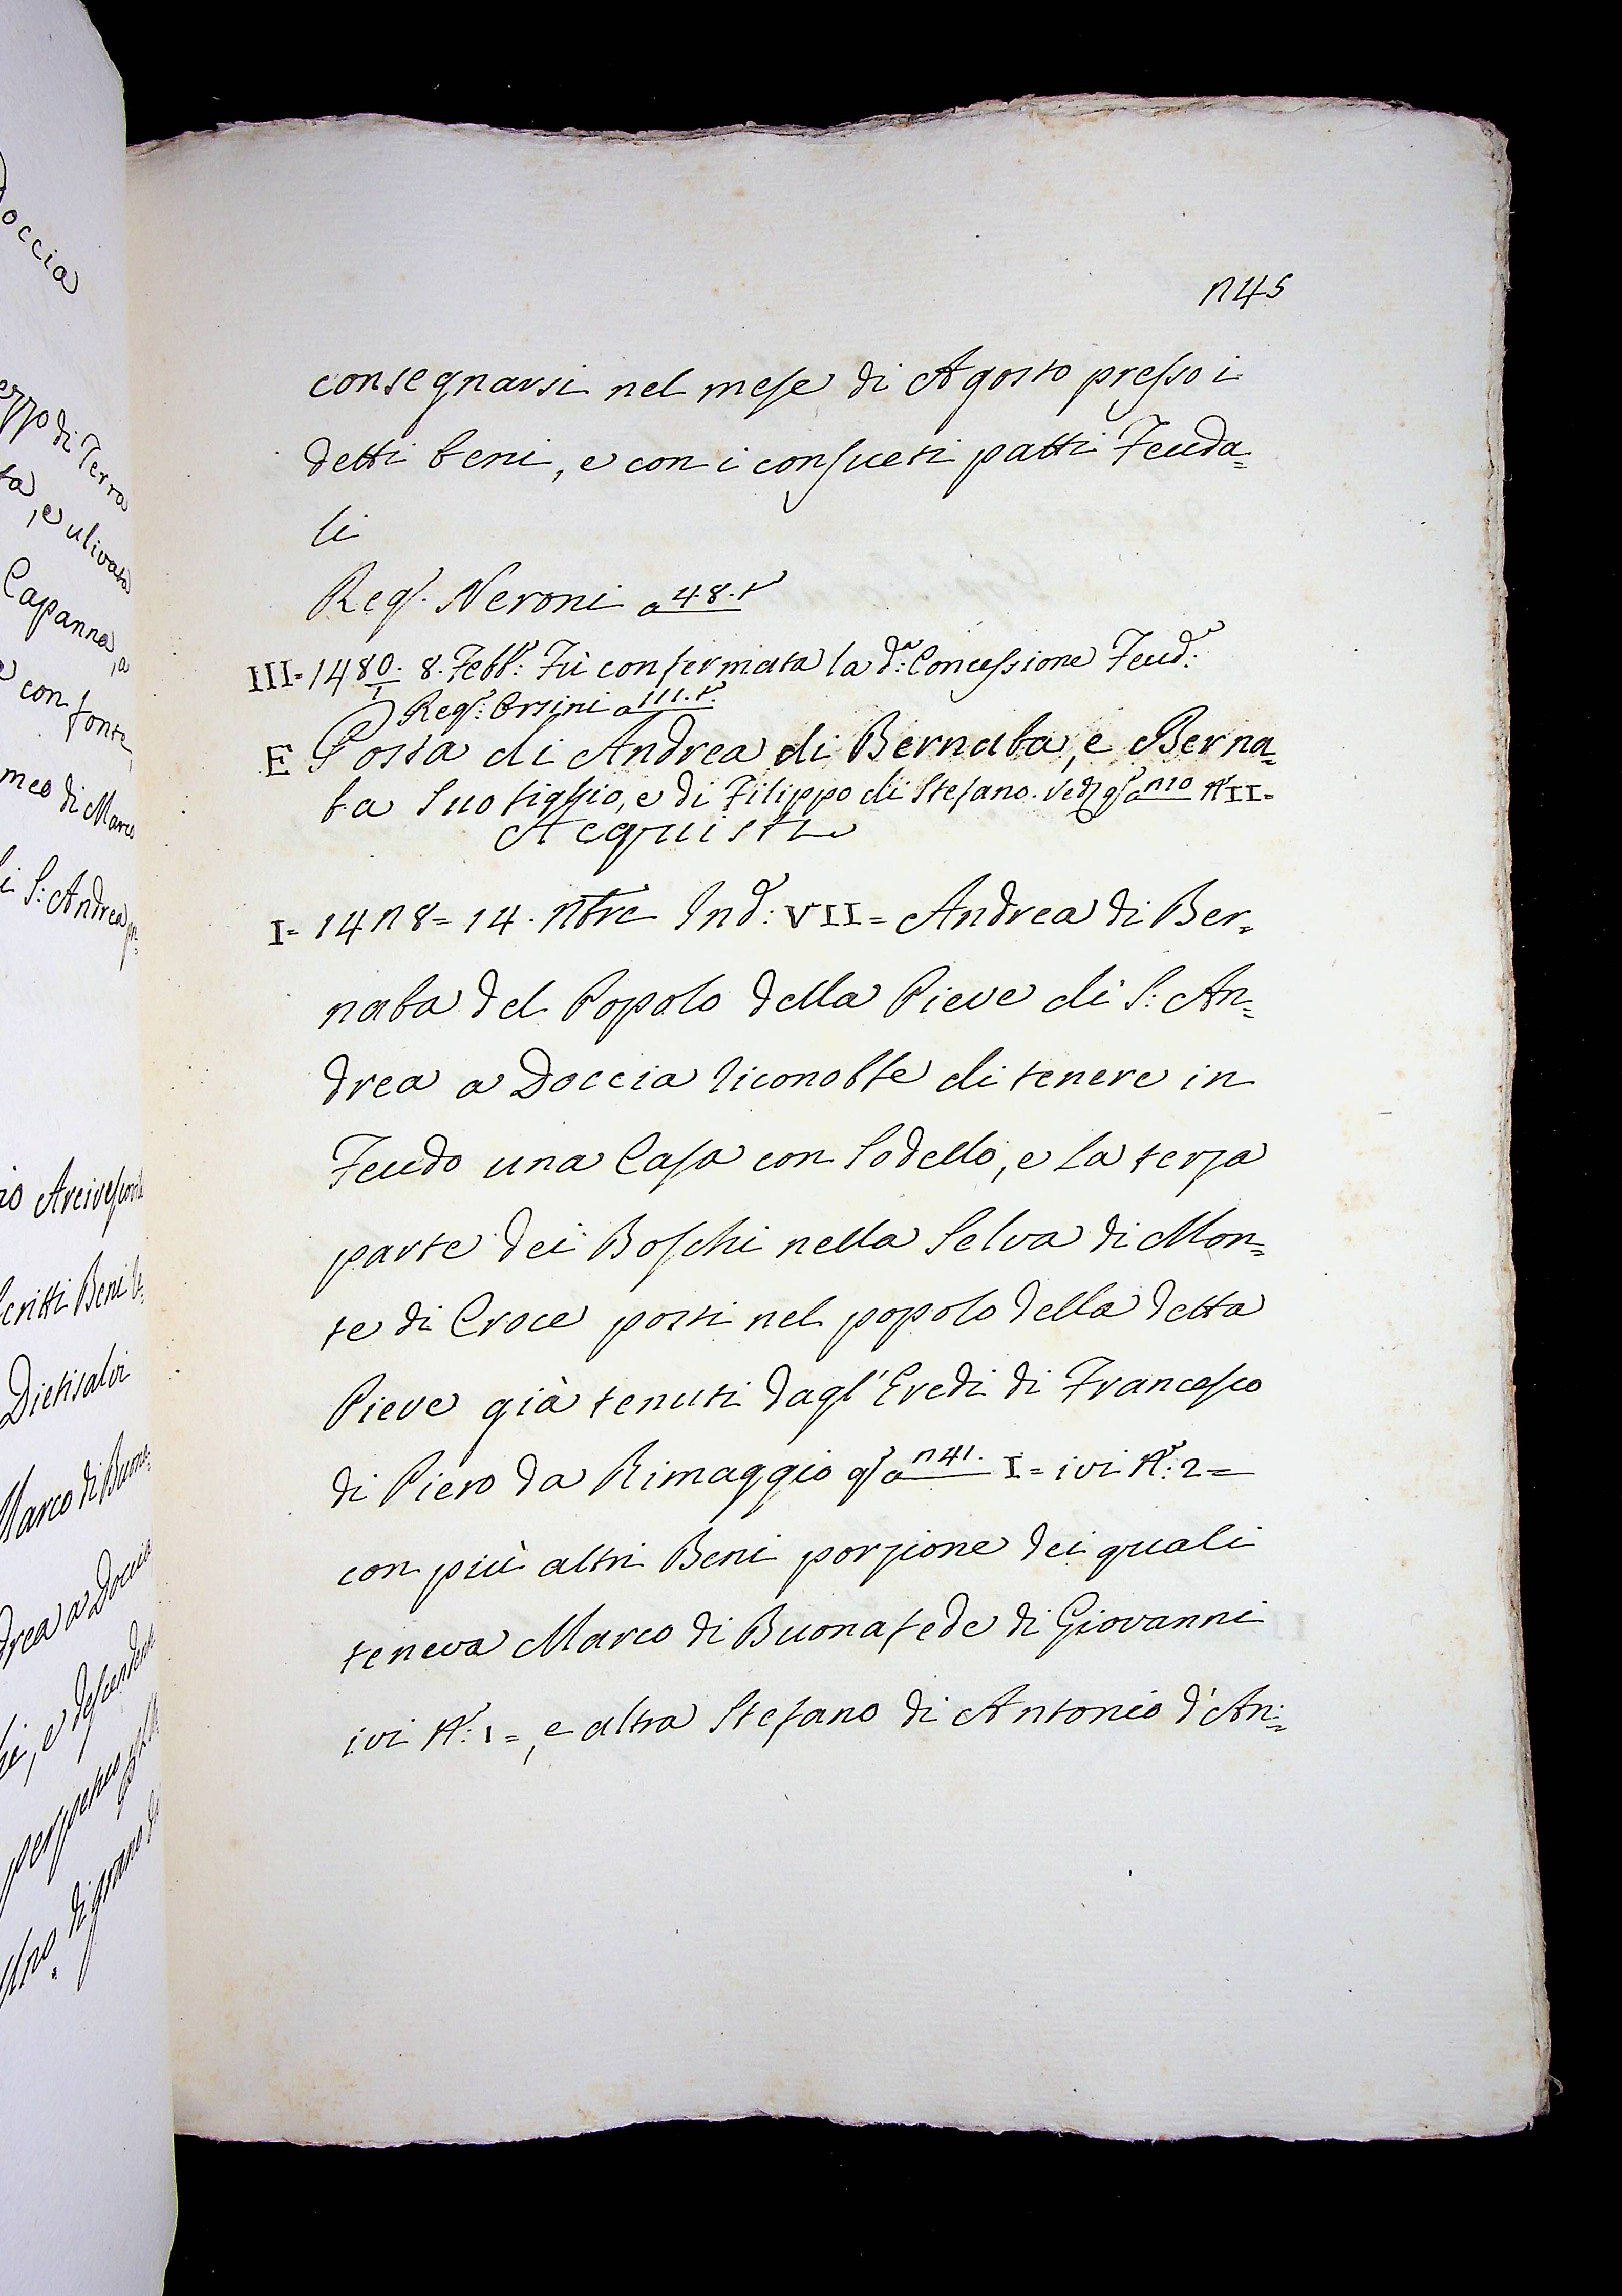 occia
ezzo di Terra
ta, e ulivata
Capanna, a
e con fonte,
meo di Marco
i S: Andrea
io Arcivescovile
critti Beni
Dietisalvi
Marco di Buona
drea a Doccia
e descendenti
perpetuo
di grano
245
consegnarsi nel mese di Agosto presso i
detti beni, e con i consueti patti Feuda=
li
Reg. Neroni a 48. t
III= 1480/1. 8. Febb: Fù confermata la d:a Concessione Feud:a
Reg: Orsini a 111. t:
E Posta di Andrea di Bernaba, e Berna=
ba suo figlio, e di Filippo di Stefano. Ved qs a 210 N II=
Acquisti
I= 1428= 14. Nbre Ind: VII= Andrea di Ber=
naba del Popolo della Pieve di S: An=
drea a Doccia riconobbe di tenere in
Feudo una Casa con Sodello, e la terza
parte dei Boschi nella Selva di Mon=
te di Croce posti nel popolo della detta
Pieve già tenuti dagl'Eredi di Francesco
di Piero da Rimaggio qs a 241. I= ivi N: 2=
con più altri Beni porzione dei quali
teneva Marco di Buonafede di Giovanni
ivi N: 1=, e altra Stefano di Antonio d'An=